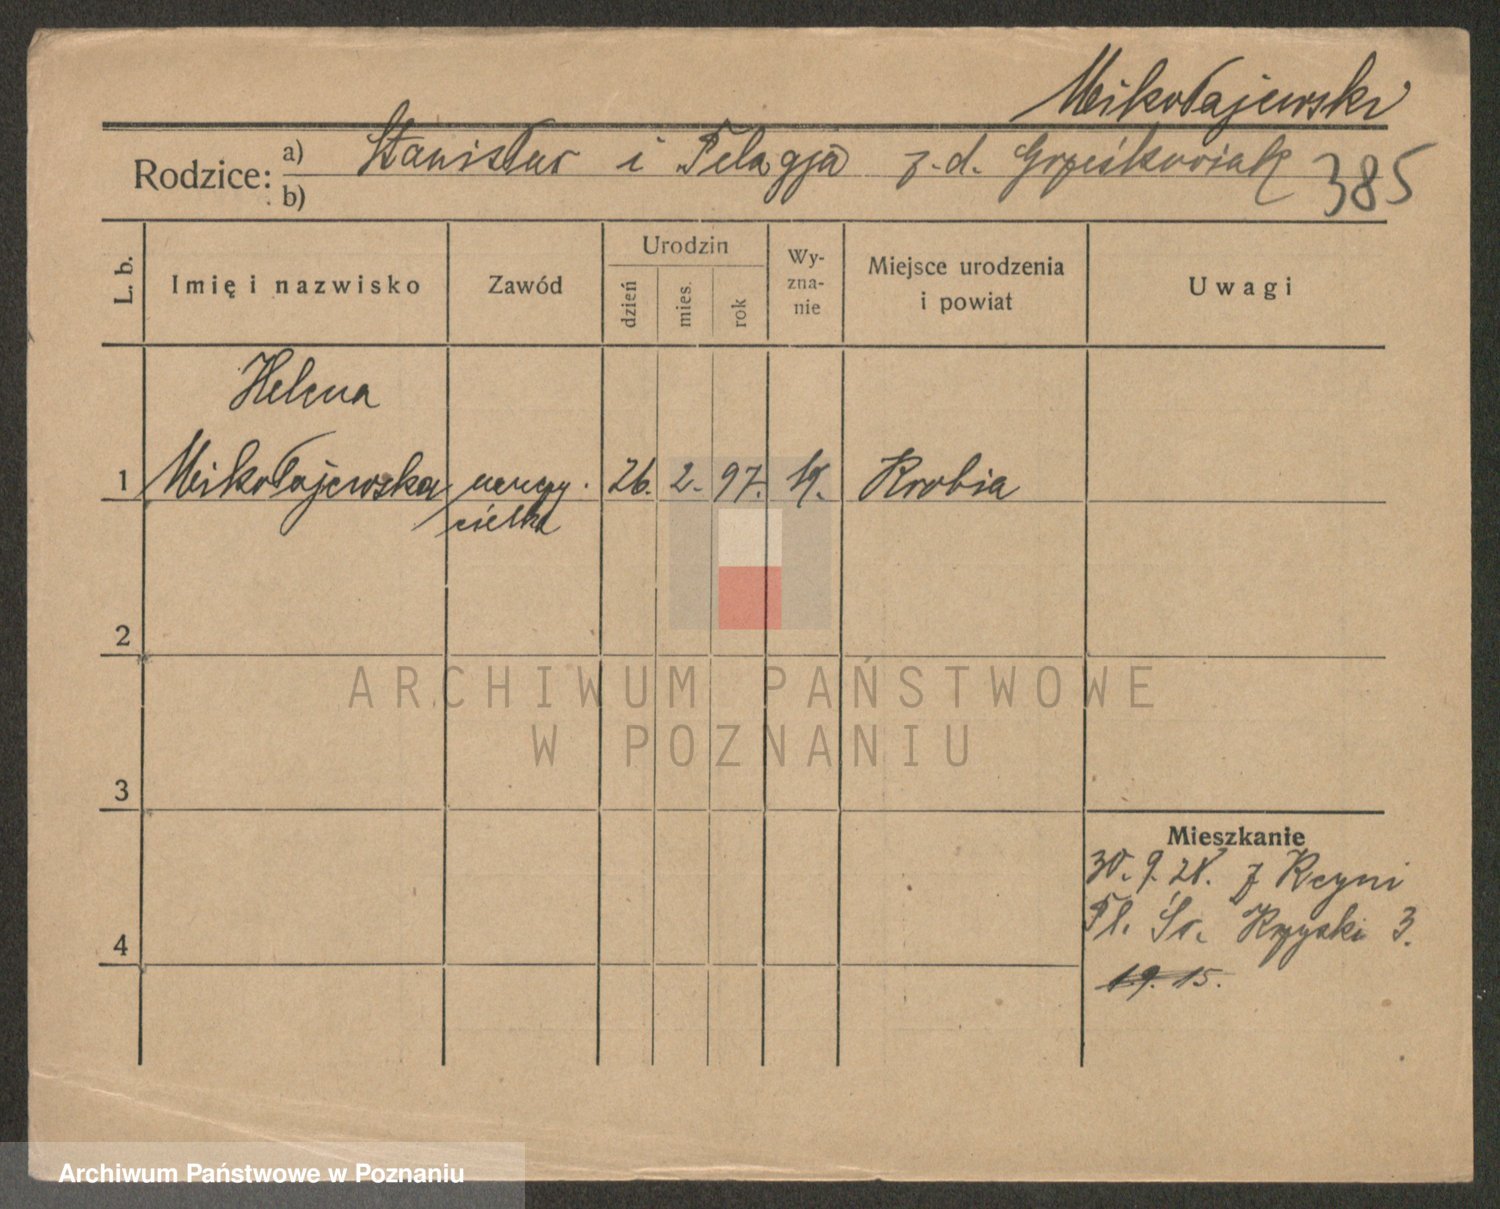 Mikołajewski
Rodzice: a) Stanisław i Pelagja z. d. Grześkowiak 385
b)
L. b. Imię i nazwisko Zawód Urodzin dzień mies. rok Wyznanie Miejsce urodzenia i powiat Uwagi
Helena
1 Mikołajewska 26. 2. 97. Krobia
cielka
2
3
4
Mieszkanie
30. 9. 28. z
Pl. Św. Krzyski 3.
19. 15.
ARCHIWUM PAŃSTWOWE
W POZNANIU
Archiwum Państwowe w Poznaniu